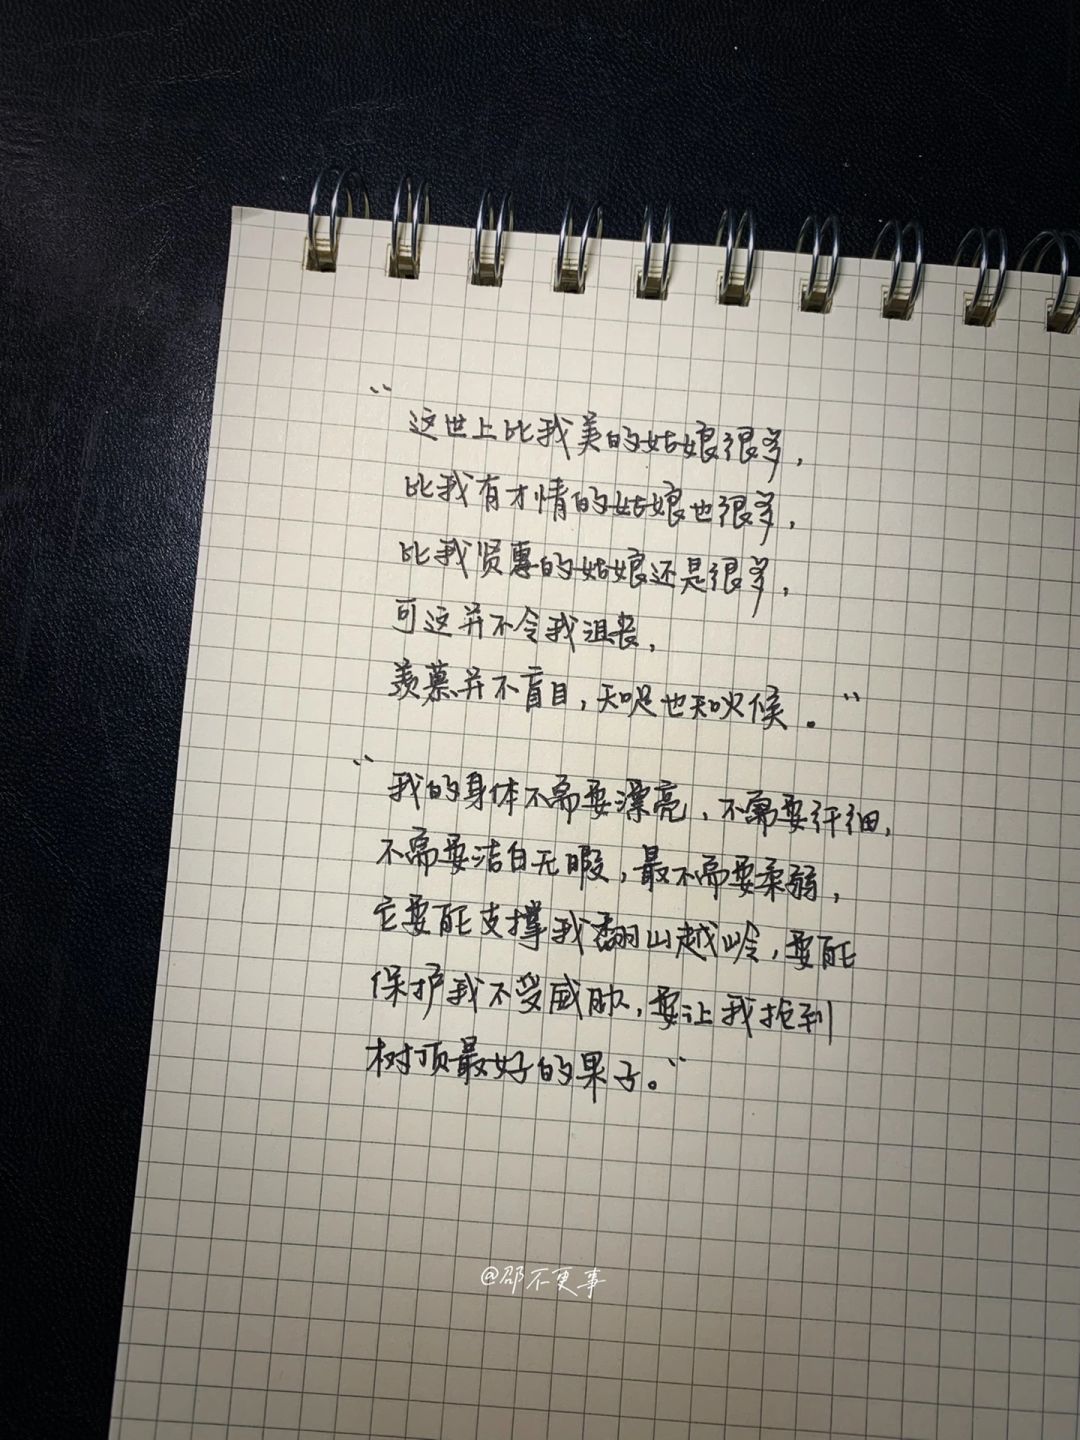 “这世上比我美的姑娘很多，
比我有才情的姑娘也很多，
比我贤惠的姑娘还是很多，
可这并不令我沮丧，
羡慕并不盲目，知足也知火候。”
“我的身体不需要漂亮，不需要纤细，
不需要洁白无暇，最不需要柔弱，
它要能支撑我翻山越岭，要能
保护我不受威胁，要让我抢到
树顶最好的果子。”
@邵不更事